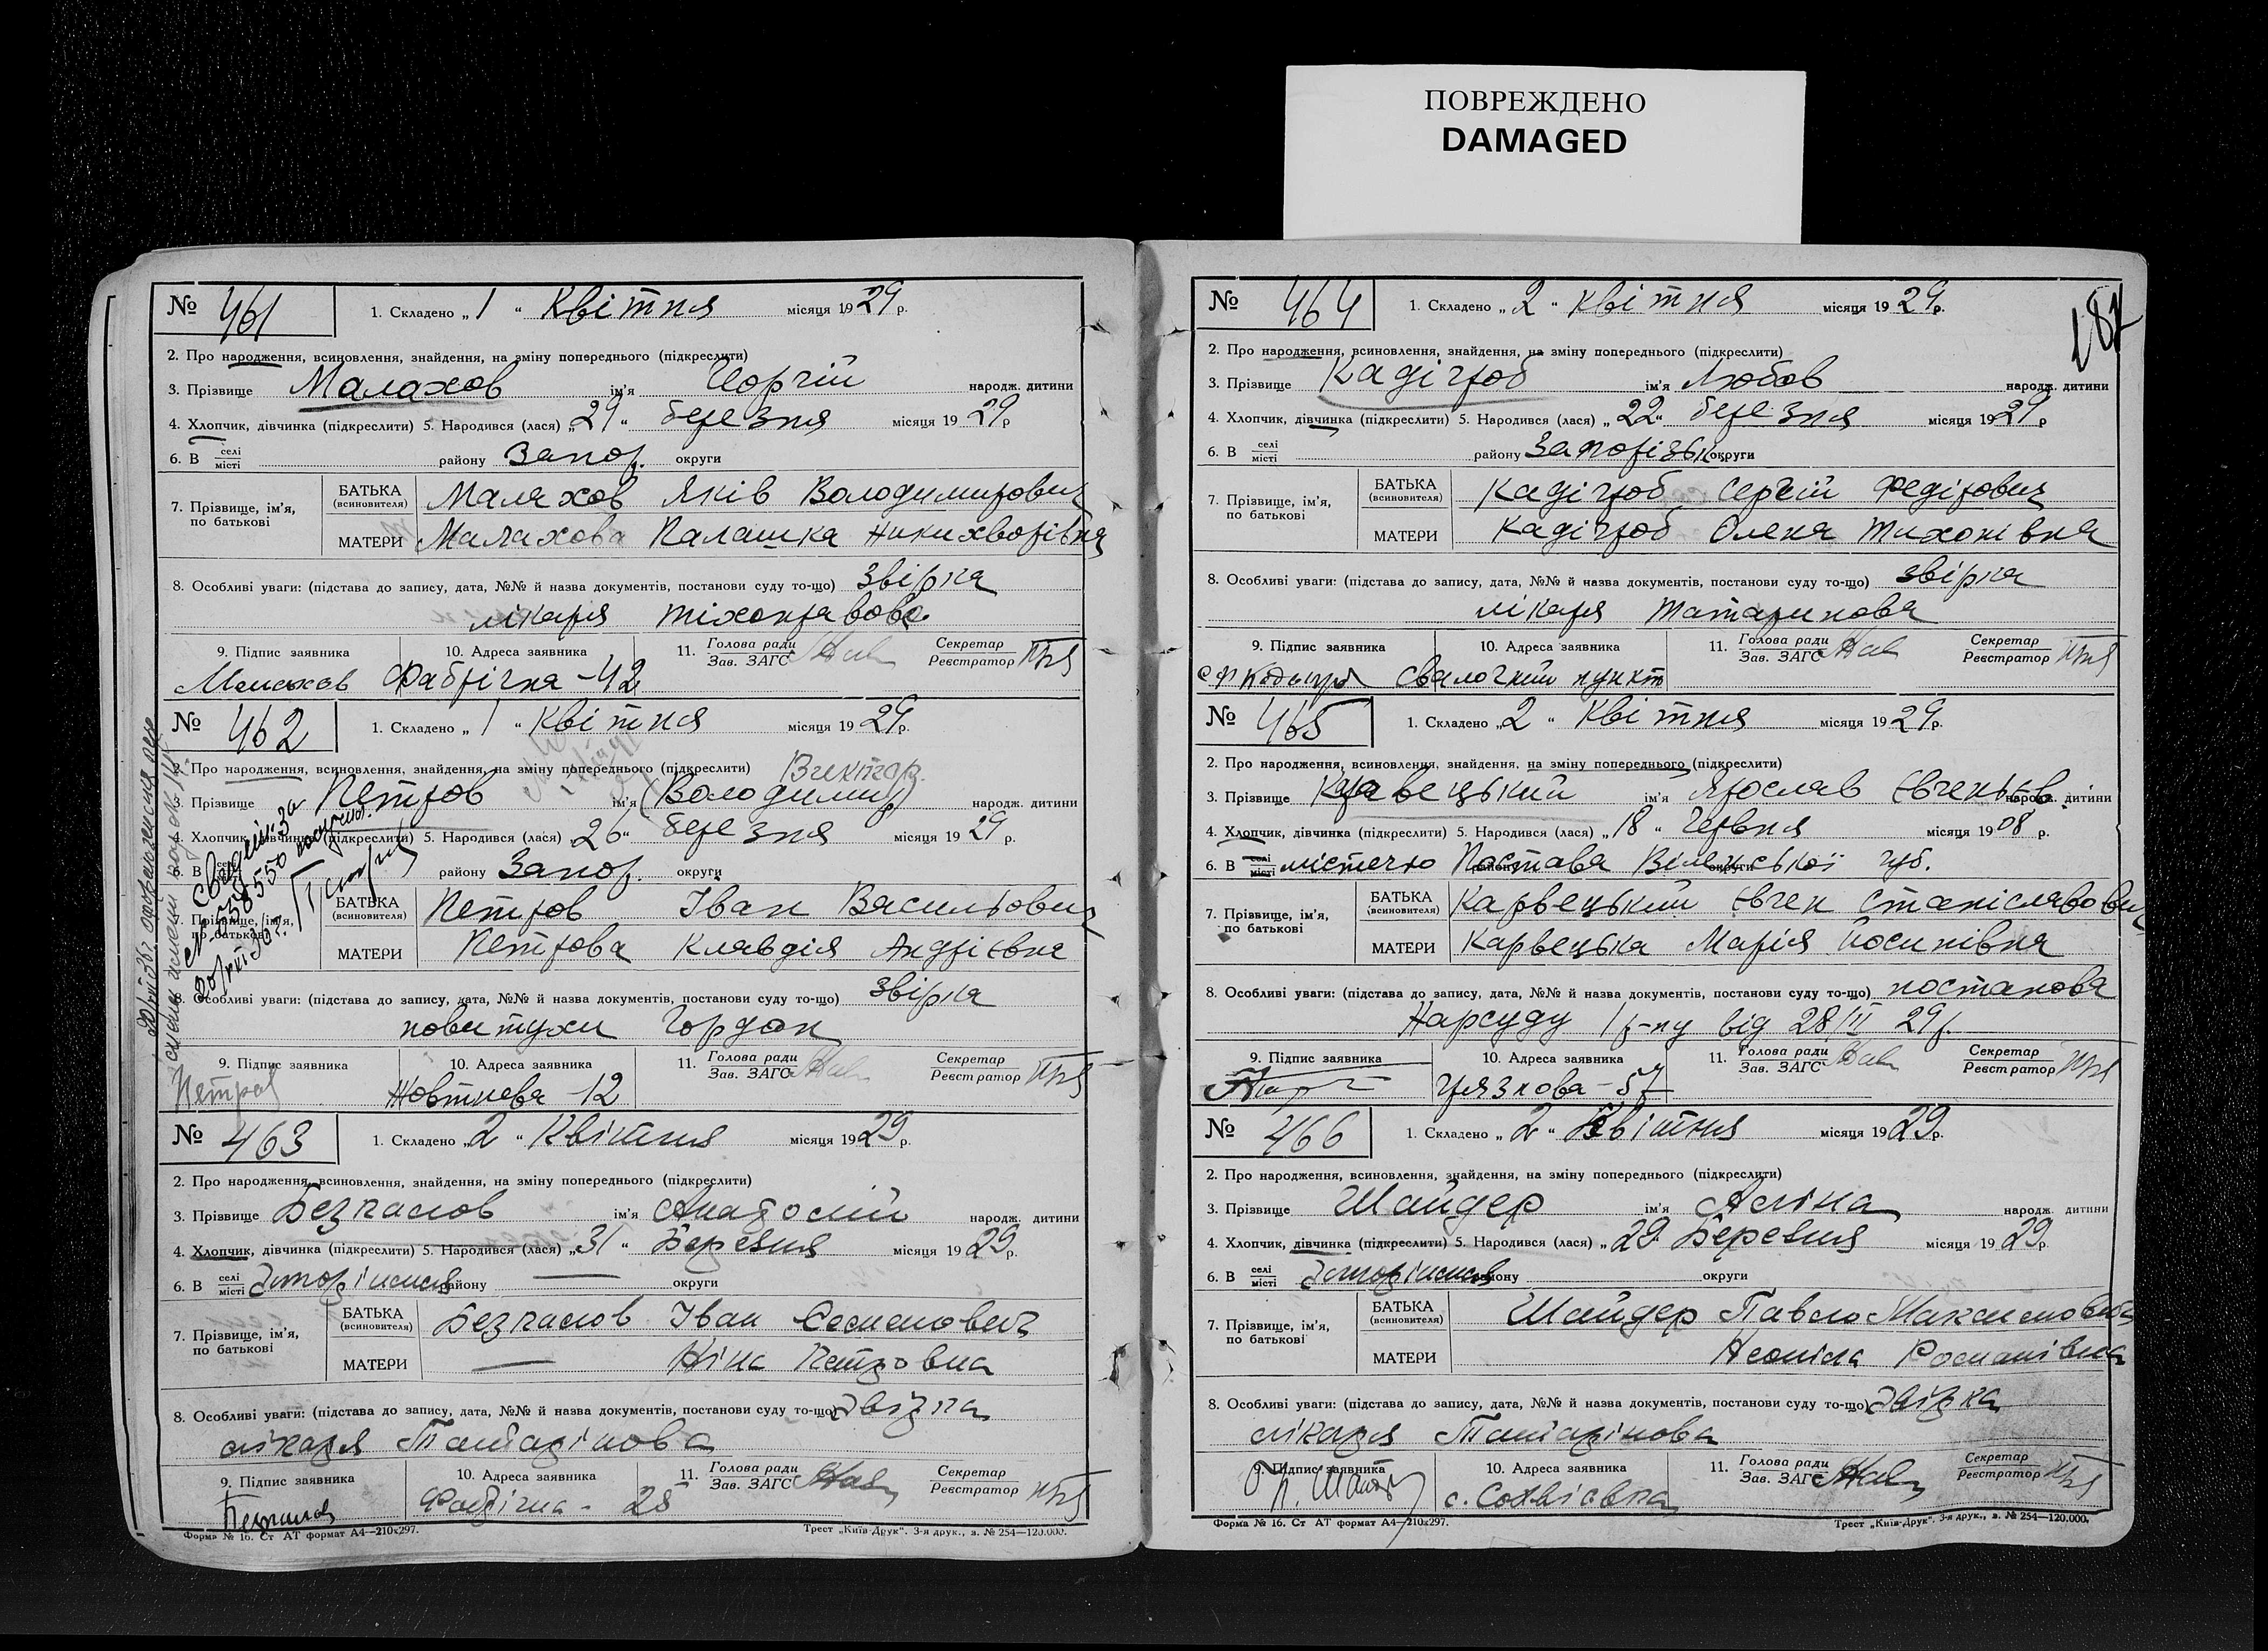 ПОВРЕЖДЕНО
DAMAGED
№ 461 1. Складено „ 1 “ Квітня місяця 1929 р.
2. Про народження, всиновлення, знайдення, на зміну попереднього (підкреслити)
3. Прізвище Малахов ім'я Йоргій народж. дитини
4. Хлопчик, дівчинка (підкреслити) 5. Народився (лася) „ 29 “ березня місяця 1929 р
6. В селі місті району Запор. округи
7. Прізвище, ім'я, по батькові
БАТЬКА (всиновителя) Маляхов Яків Володимирович
МАТЕРИ Малахова Палашка Никихворівна
8. Особливі уваги: (підстава до запису, дата, №№ й назва документів, постанови суду то-що) Звірка
лікаря Тіхонравова
9. Підпис заявника 10. Адреса заявника 11. Голова ради Зав. ЗАГС Секретар Реєстратор
Фабрична - 42
№ 462 1. Складено „ 1 “ Квітня місяця 1929 р.
2. Про народження, всиновлення, знайдення, на зміну попереднього (підкреслити) Виктор.
3. Прізвище Петров ім'я (Володимир) народж. дитини
4. Хлопчик, дівчинка (підкреслити) 5. Народився (лася) „ 26 “ березня місяця 1929 р.
6. В селі місті району Запор. округи
7. Прізвище, ім'я, по батькові
БАТЬКА (всиновителя) Петров Іван Васильович
МАТЕРИ Петрова Клавдія Андрієвна
8. Особливі уваги: (підстава до запису, дата, №№ й назва документів, постанови суду то-що) Звірка
повитухи Гордон
9. Підпис заявника 10. Адреса заявника 11. Голова ради Зав. ЗАГС Секретар Реєстратор
Петров Жовтнева - 12
№ 463 1. Складено „ 2 “ Квітня місяця 1929 р.
2. Про народження, всиновлення, знайдення, на зміну попереднього (підкреслити)
3. Прізвище Безпалов ім'я Анатолій народж. дитини
4. Хлопчик, дівчинка (підкреслити) 5. Народився (лася) „ 31 “ Березня місяця 1929 р.
6. В селі місті району — округи
7. Прізвище, ім'я, по батькові
БАТЬКА (всиновителя) Безпалов Іван Семенович
МАТЕРИ — Ніна Петровна
8. Особливі уваги: (підстава до запису, дата, №№ й назва документів, постанови суду то-що) Звірка
лікаря Татарінова
9. Підпис заявника 10. Адреса заявника 11. Голова ради Зав. ЗАГС Секретар Реєстратор
Форма № 16. Ст АТ формат А4—210x297. Трест „Київ-Друк“. 3-я друк., з. № 254—120.000.
№ 464 1. Складено „ 2 “ Квітня місяця 1929 р.
2. Про народження, всиновлення, знайдення, на зміну попереднього (підкреслити)
3. Прізвище Кадігроб ім'я Любов народж. дитини
4. Хлопчик, дівчинка (підкреслити) 5. Народився (лася) „ 22 “ березня місяця 1929 р
6. В селі місті району Запорізьк. округи
7. Прізвище, ім'я, по батькові
БАТЬКА (всиновителя) Кадігроб Сергій Федірович
МАТЕРИ Кадігроб Олена Тихонівна
8. Особливі уваги: (підстава до запису, дата, №№ й назва документів, постанови суду то-що) звірка
лікаря Татаринова
9. Підпис заявника 10. Адреса заявника 11. Голова ради Зав. ЗАГС Секретар Реєстратор
Свалочний пункт
№ 465 1. Складено „ 2 “ Квітня місяця 1929 р.
2. Про народження, всиновлення, знайдення, на зміну попереднього (підкреслити)
3. Прізвище ім'я Ярослав Євгеньєв. народж. дитини
4. Хлопчик, дівчинка (підкреслити) 5. Народився (лася) „ 18 “ Червня місяця 1908 р.
6. В селі місті містечко Постава району Віленської округи губ.
7. Прізвище, ім'я, по батькові
БАТЬКА (всиновителя) Карвецький Євген Станіславович
МАТЕРИ Карвецька Марія Йосипівна
8. Особливі уваги: (підстава до запису, дата, №№ й назва документів, постанови суду то-що) постанова
Нарсуду 1 р-ну від 28/II 29 р.
9. Підпис заявника 10. Адреса заявника 11. Голова ради Зав. ЗАГС Секретар Реєстратор
Грязнова - 57
№ 466 1. Складено „ 2 “ Квітня місяця 1929 р.
2. Про народження, всиновлення, знайдення, на зміну попереднього (підкреслити)
3. Прізвище Шайдер ім'я Аліна народж. дитини
4. Хлопчик, дівчинка (підкреслити) 5. Народився (лася) „ 29 Березня місяця 1929 р.
6. В селі місті району округи
7. Прізвище, ім'я, по батькові
БАТЬКА (всиновителя) Шайдер Павло Максимович
МАТЕРИ Леоніла Романівна
8. Особливі уваги: (підстава до запису, дата, №№ й назва документів, постанови суду то-що) Звірка
лікаря Татарінова
9. Підпис заявника 10. Адреса заявника 11. Голова ради Зав. ЗАГС Секретар Реєстратор
Форма № 16. Ст АТ формат А4—210x297. Трест „Київ-Друк“. 3-я друк., з. № 254—120.000.